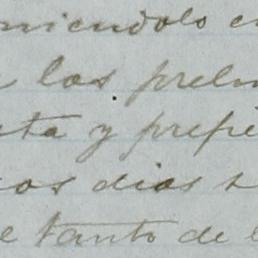 niendolo e
los prelm
ta y prefi
os dias
tanto de l